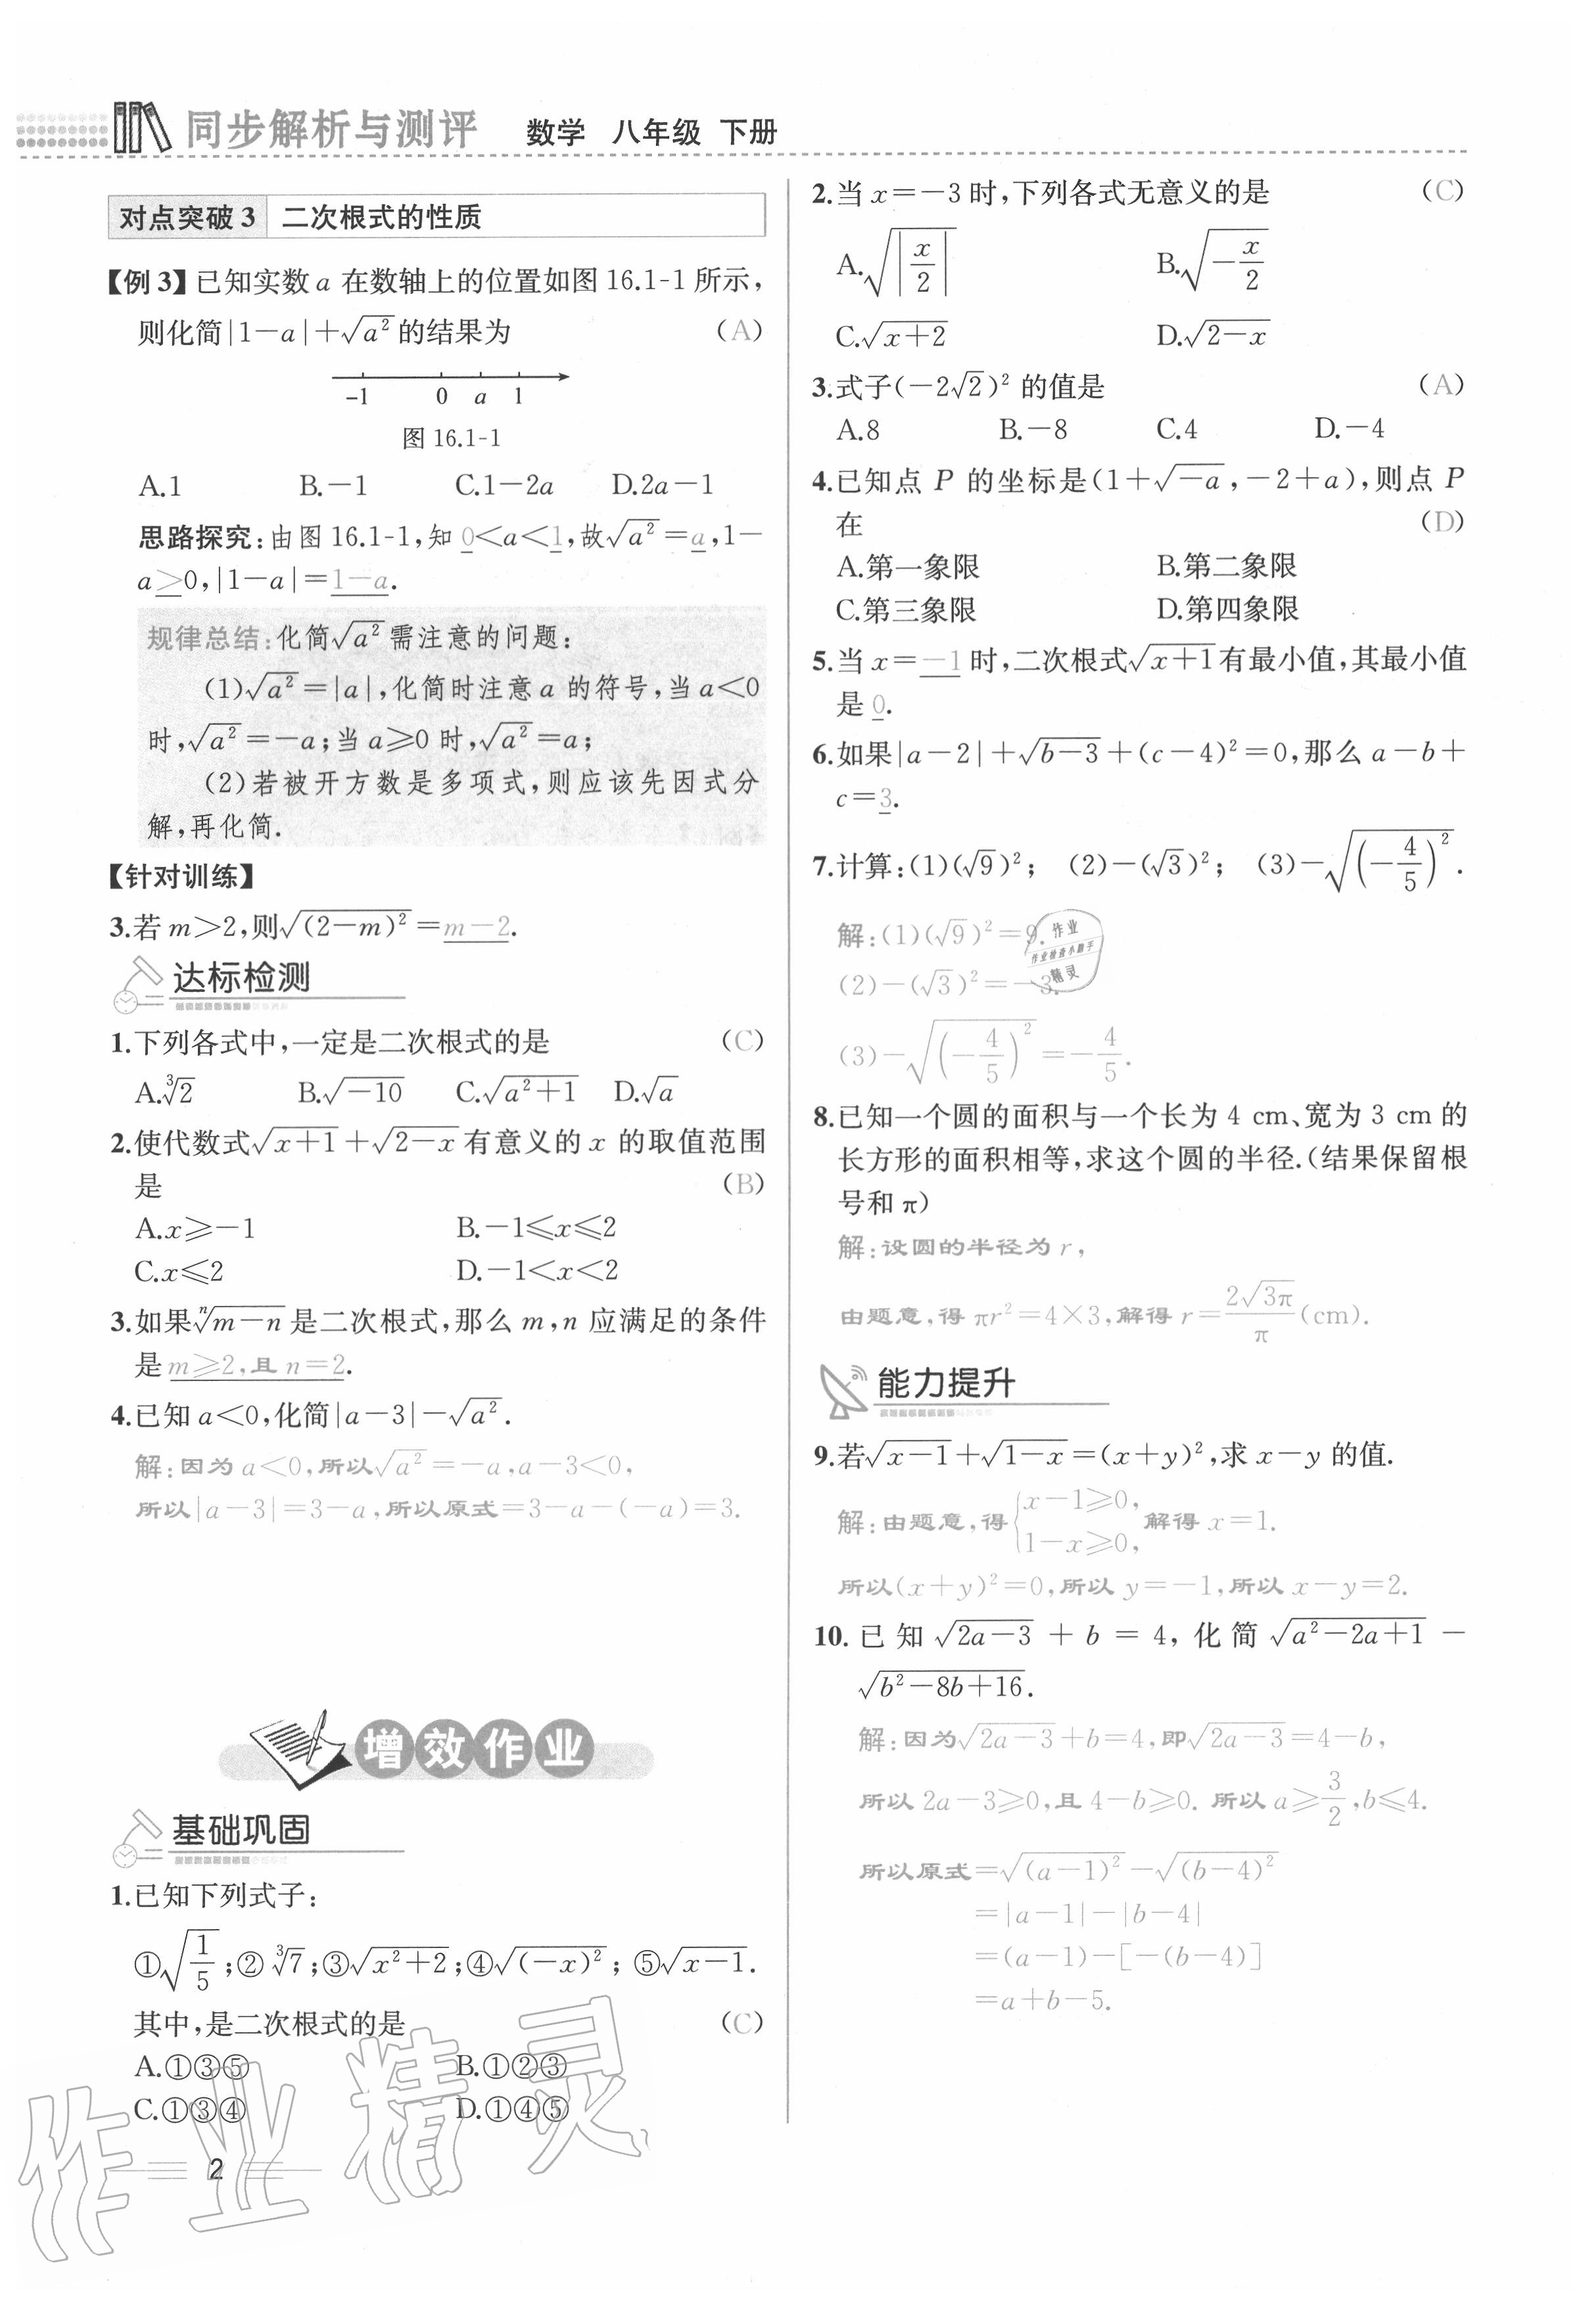 同步解析与测评 数学 八年级 下册
对点突破3 二次根式的性质
【例3】已知实数a在数轴上的位置如图16.1-1所示，
则化简|1－a|＋√(a²)的结果为 （A）
-1 0 a 1
图16.1-1
A.1 B.－1 C.1－2a D.2a－1
思路探究：由图16.1-1，知0＜a＜1，故√(a²)＝a，1－
a＞0，|1－a|＝1－a.
规律总结：化简√(a²)需注意的问题：
(1)√(a²)＝|a|，化简时注意a的符号，当a＜0
时，√(a²)＝－a；当a≥0时，√(a²)＝a；
(2)若被开方数是多项式，则应该先因式分
解，再化简.
【针对训练】
3.若m＞2，则√((2－m)²)＝m－2.
达标检测
1.下列各式中，一定是二次根式的是 （C）
A.∛2 B.√(－10) C.√(a²＋1) D.√a
2.使代数式√(x＋1)＋√(2－x)有意义的x的取值范围
是 （B）
A.x≥－1 B.－1≤x≤2
C.x≤2 D.－1＜x＜2
3.如果ⁿ√(m－n)是二次根式，那么m，n应满足的条件
是m≥2，且n＝2.
4.已知a＜0，化简|a－3|－√(a²).
解：因为a＜0，所以√(a²)＝－a，a－3＜0，
所以|a－3|＝3－a，所以原式＝3－a－(－a)＝3.
增效作业
基础巩固
1.已知下列式子：
①√(1/5)；②∛7；③√(x²＋2)；④√((－x)²)；⑤√(x－1).
其中，是二次根式的是 （C）
A.①③⑤ B.①②③
C.①③④ D.①④⑤
2
2.当x＝－3时，下列各式无意义的是 （C）
A.√|x/2| B.√(－x/2)
C.√(x＋2) D.√(2－x)
3.式子(－2√2)²的值是 （A）
A.8 B.－8 C.4 D.－4
4.已知点P的坐标是(1＋√(－a)，－2＋a)，则点P
在 （D）
A.第一象限 B.第二象限
C.第三象限 D.第四象限
5.当x＝－1时，二次根式√(x＋1)有最小值，其最小值
是0.
6.如果|a－2|＋√(b－3)＋(c－4)²＝0，那么a－b＋
c＝3.
7.计算：(1)(√9)²； (2)－(√3)²； (3)－√((－4/5)²).
解：(1)(√9)²＝9.
(2)－(√3)²＝－3.
(3)－√((－4/5)²)＝－4/5.
作业
作业检查小助手
精灵
8.已知一个圆的面积与一个长为4 cm、宽为3 cm的
长方形的面积相等，求这个圆的半径.(结果保留根
号和π)
解：设圆的半径为r，
由题意，得πr²＝4×3，解得r＝2√(3π)/π(cm).
能力提升
9.若√(x－1)＋√(1－x)＝(x＋y)²，求x－y的值.
解：由题意，得{x－1≥0，1－x≥0，解得x＝1.
所以(x＋y)²＝0，所以y＝－1，所以x－y＝2.
10.已知√(2a－3)＋b＝4，化简√(a²－2a＋1)－
√(b²－8b＋16).
解：因为√(2a－3)＋b＝4，即√(2a－3)＝4－b，
所以2a－3≥0，且4－b≥0. 所以a≥3/2，b≤4.
所以原式＝√((a－1)²)－√((b－4)²)
＝|a－1|－|b－4|
＝(a－1)－[－(b－4)]
＝a＋b－5.
作业精灵